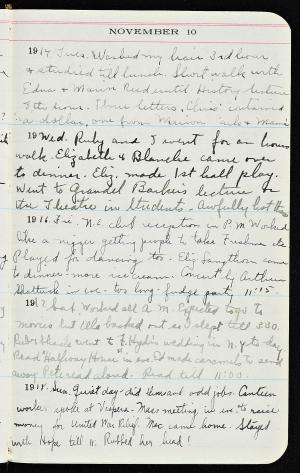 NOVEMBER 10
1914 Tues. Washed my hair 3rd hour
& studied till lunch. Short walk with
Edna & Marion. Residential History lecture
7th hour. Three letters, Chris' contained
a dollar, one from Marion
19 Wed. Ruby and I went for an hours
walk. Elizabeth & Blanche came over
to dinner. Eliz. made 1st hall play.
Went to Granvil Barker's lecture on
the Theatre in Students. Awfully hot
1916. Fri. N.E. club reception in P.M. Worked
like a nigger getting people to take Freshmen etc.
Played for dancing too. Eliz Langthorn came
to dinner - more ice cream. Concert by Arthur
in eve. too long - fudge party 11:15
1917 Sat. Worked all A.M. Expected to go to
movies but Ella backed out so I slept till 3:30.
went to F. Hyde's wedding in N.Y. to-day
Read "Halfway House" in eve. Ed made caramels to send
away. Pete read aloud. Read till 11:00.
1918. Sun. Quiet day - did thousand odd jobs. Canteen
worker spoke at Vespers - Mass meeting in eve to raise
money for United War Relief. Mac came home. Stayed
with Hope till 11. Rubbed her head!